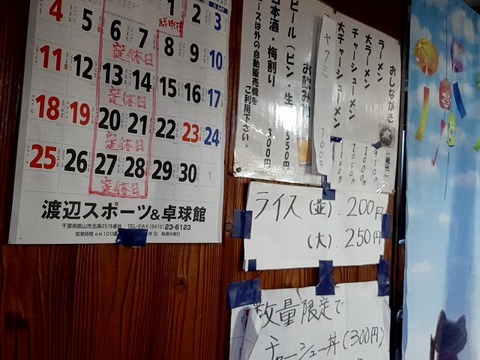 4 5 6 7 1 2 3
定休日
8 9 10
11 12 13 14 15 16 17
定休日
18 19 20 21 22 23 24
定休日
25 26 27 28 29 30
定休日
渡辺スポーツ&卓球館
千葉県館山市北条2578番地 TEL・FAX(0470)23-6123
営業時間 A.M 10:00
お飲み
ビール(ビン・生) 550円
日本酒・梅割り 100円
ース以外の自動販売機を
ご利用下さい。
おしながき
ラーメン
大ラーメン
チャーシューメン
大チャーシューメン
ヤクミ 100円
ライス (並). 200円
(大). 250円
数量限定で
チャーシュー丼(300円)